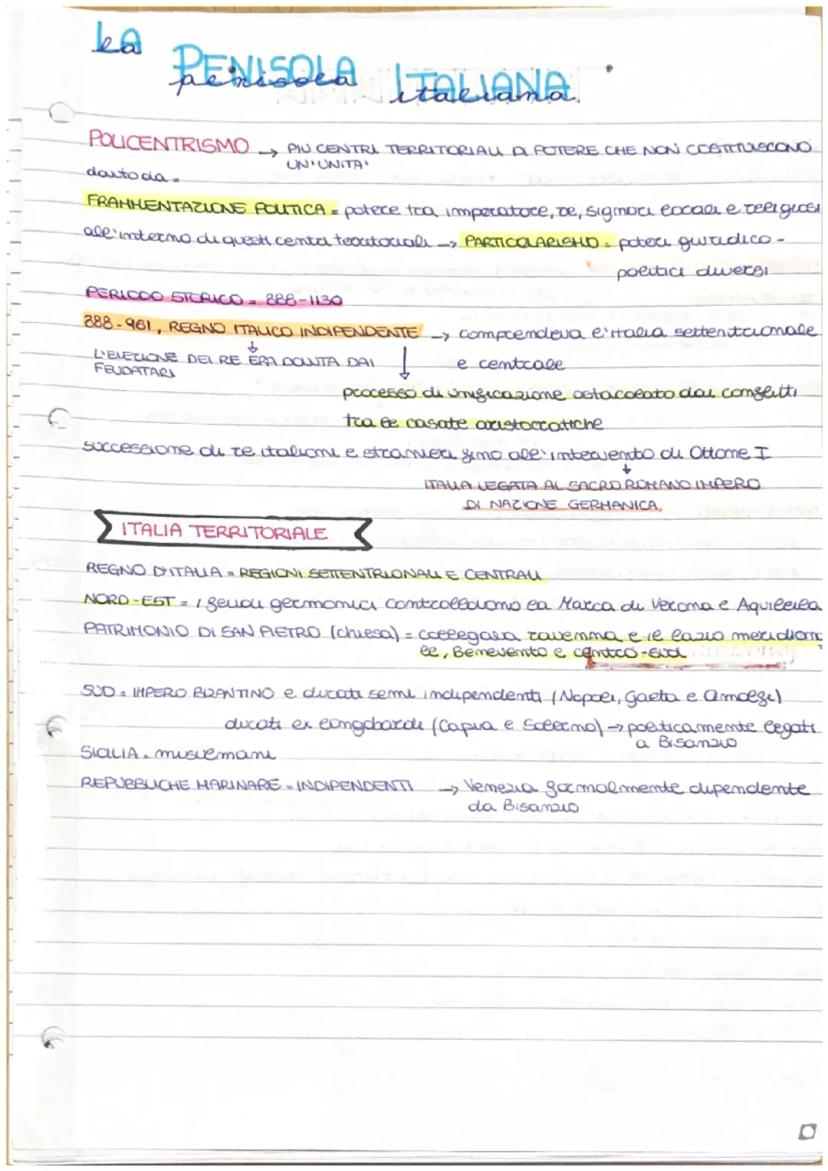 LA PENISOLA ITALIANA
la penisola italiana.
POLICENTRISMO → PIÙ CENTRI TERRITORIALI DI POTERE CHE NON COSTITUISCONO
UN'UNITA'
dovuto da =
FRAMMENTAZIONE POLITICA = potere tra imperatore, re, signori locali e religiosi
all'interno di questi centri territoriali → PARTICOLARISMO = poteri giuridico-
politici diversi
PERIODO STORICO = 888-1130
888-961, REGNO ITALICO INDIPENDENTE → comprendeva l'italia settentrionale
e centrale
L'ELEZIONE DEI RE ERA DOVUTA DAI
FEUDATARI
processo di unificazione ostacolato dai conflitti
tra le casate aristocratiche
successione di re italiani e stranieri fino all'intervento di Ottone I
ITALIA LEGATA AL SACRO ROMANO IMPERO
DI NAZIONE GERMANICA.
ITALIA TERRITORIALE
REGNO D'ITALIA = REGIONI SETTENTRIONALI E CENTRALI
NORD-EST = i feudi germanici controllavano la Marca di Verona e Aquileia
PATRIMONIO DI SAN PIETRO (chiesa) = collegava ravenna, e il lazio meridiona
le, Benevento e centro-sud
SUD = IMPERO BIZANTINO e ducati semi indipendenti (Napoli, Gaeta e Amalfi)
ducati ex longobardi (Capua e Salerno) → politicamente legati
a Bisanzio
SICILIA = musulmani
REPUBBLICHE MARINARE = INDIPENDENTI → Venezia formalmente dipendente
da Bisanzio